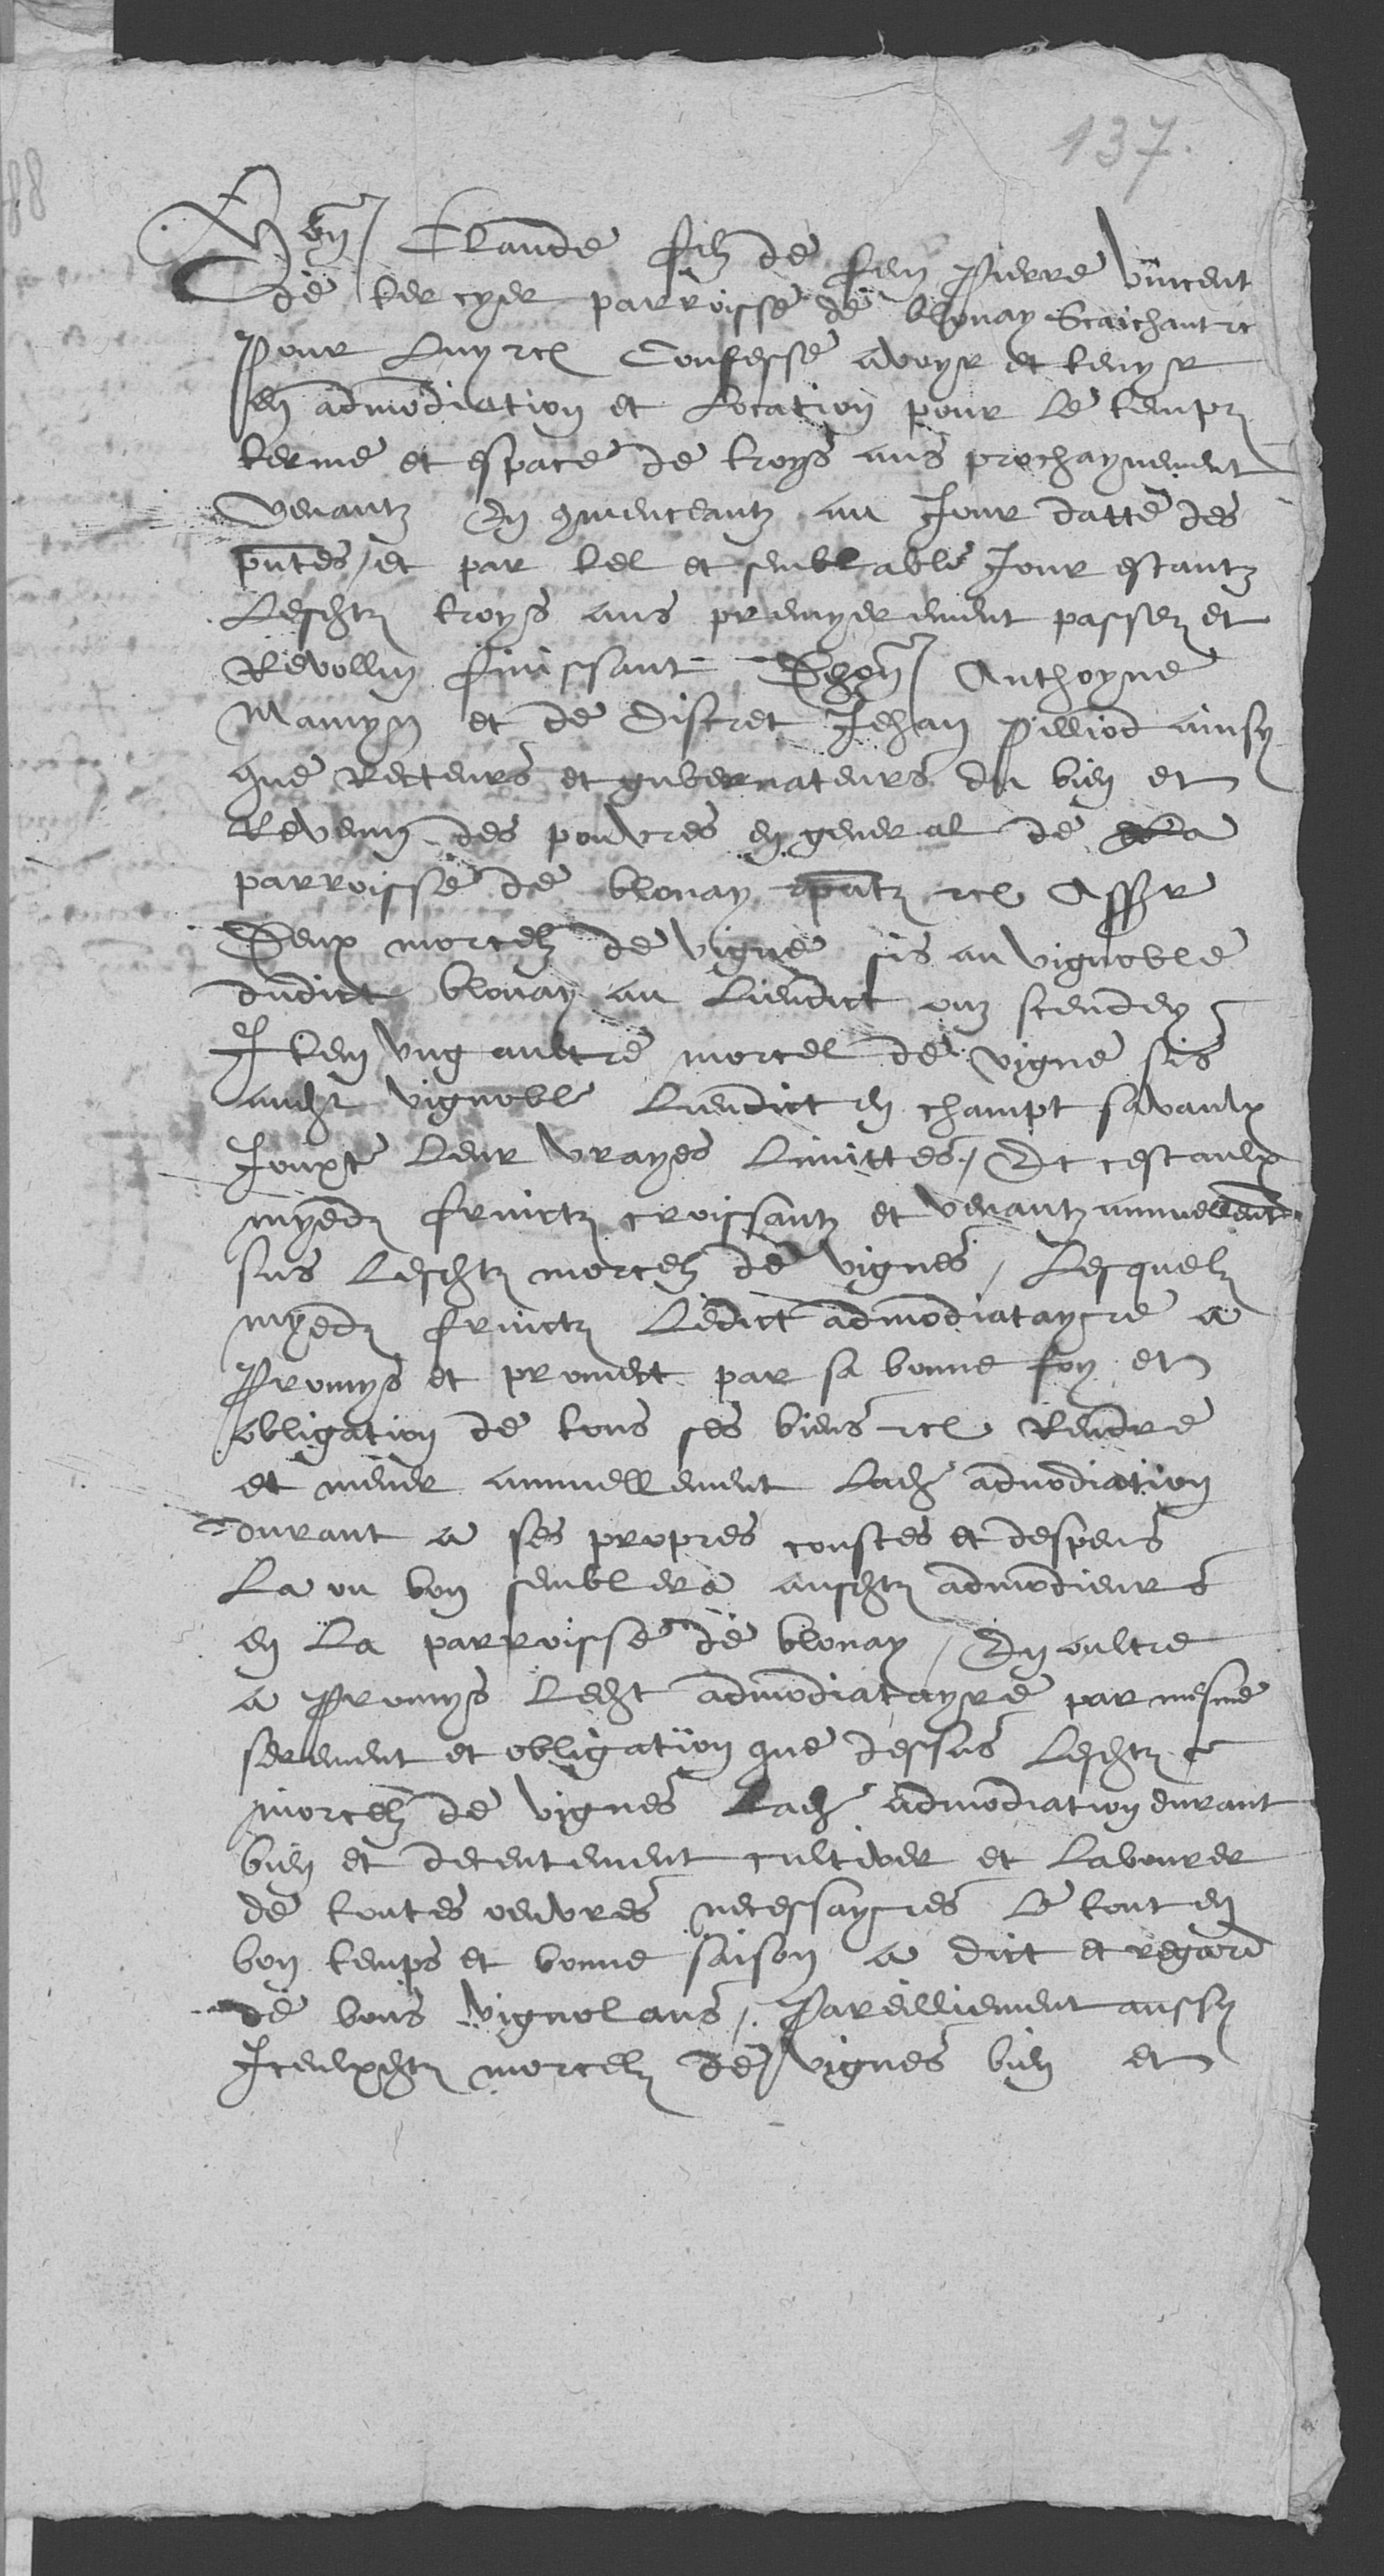 137.
Hon Claude filz de feu Pierre Vincent
de tercyer parroisse de blonay Scaichant etc
Pour Luy etc Confesse avoyr et tenyr
en admodiation et Location pour Le tempz
terme et espace de troys ans prochaynement
Venantz En gmenceantz au Jour datte des
pntes / et par tel et semblable Jour estantz
Lesdtz troys ans premyerement passez et
Revollu finissant Dhon Anthoyne
Mamyn et de Discret Jehan Pilliod ainsy
que Recteurs et guberrnateurs du bien et
Revenu des pouvres en general de La
parroisse de blonay pntz etc Assr
Deux morcelz de vigne sis au vignoble
dudict blonay au Lieudict ouz scendey
Item ung aultre morcel de vigne sis
audt vignoble Lieudict en champt savaulx
Jouxte Leur vrayes Limittes / Et cest aulx
myedz fruictz croissantz et venantz annuellemt
sus Lesdtz morcelz de vignes / Lesquelz
myedz fruictz Ledict admodiatayre a
Promys et promect par sa bonne foy et
obligation de tous ses biens etc Rendre
et mener annuellement Lade admodiation
durant a ses propres coustes et despens
La ou bon semblera ausdtz admodieurs
en La parroisse de blonay / En oultre
a Promys Ledt admodiatayre par mesme
serement et obligation que dessus Lesdtz
morcelz de vignes Lade admodiation durant
bien et decentement cultiver et Labourer
de toutes oeuvres necessayres Le tout en
bon temps et bonne saison a dict et regard
de bons vignolans / Pareilliement aussy
Iceulxdtz morcelz de vignes bien et